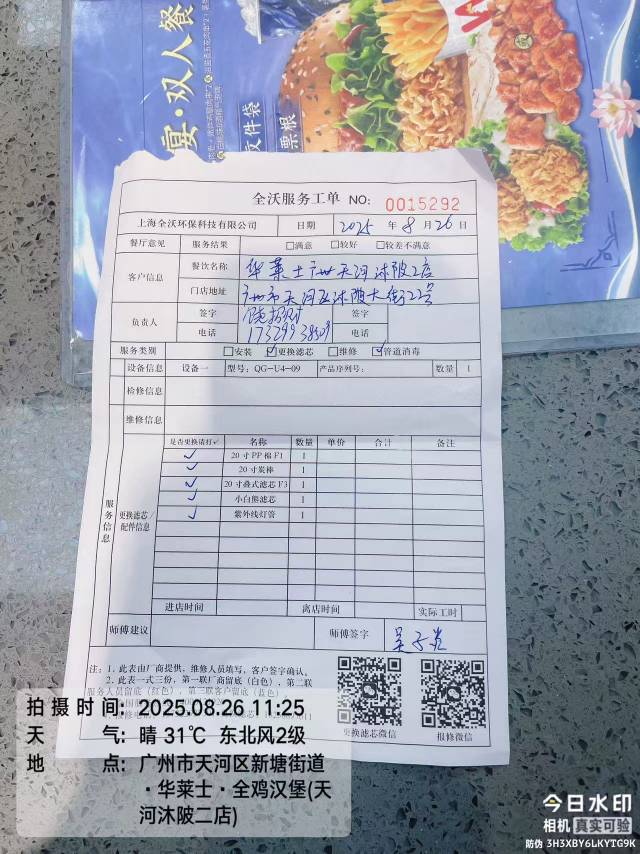 宴·双人餐
文件袋
票根
全沃服务工单 NO: 0015292
上海全沃环保科技有限公司 日期 2025 年 8 月 26 日
餐厅意见 服务结果 □满意 □较好 □较差不满意
客户信息 餐饮名称 华莱士广州天河沐陂2店
门店地址 广州市天河区沐陂大街22号
负责人 签字 签字
电话 电话
服务类别 □安装 ☑更换滤芯 □维修 ☑管道消毒
设备信息 设备一 型号: QG-U4-09 产品序列号: 数量 1
检修信息
维修信息
服务信息
更换滤芯/配件信息
是否更换请打✓ 名称 数量 单价 合计 备注
✓ 20寸PP棉F1 1
✓ 20寸炭棒 1
✓ 20寸叠式滤芯F3 1
✓ 小白熊滤芯 1
✓ 紫外线灯管 1
进店时间 离店时间 实际工时
师傅建议 师傅签字
注:1、此表由厂商提供,维修人员填写、客户签字确认。
2、此表一式三份,第一联厂商留底(白色),第二联
服务人员留底(红色),第三联客户留底(蓝色)。
更换滤芯微信 报修微信
拍摄时间: 2025.08.26 11:25
天 气: 晴 31℃ 东北风2级
地 点: 广州市天河区新塘街道
·华莱士·全鸡汉堡(天
河沐陂二店)
今日水印
相机 真实可验
防伪 3H3XBY6LKYTG9K